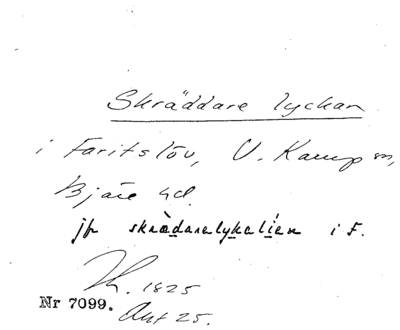 Skräddare lyckan
i Faritslöv, V. Karup sn,
Bjäre hd.
jfr skrädarelykalién i F.
1825
Nr 7099. Akt 25.